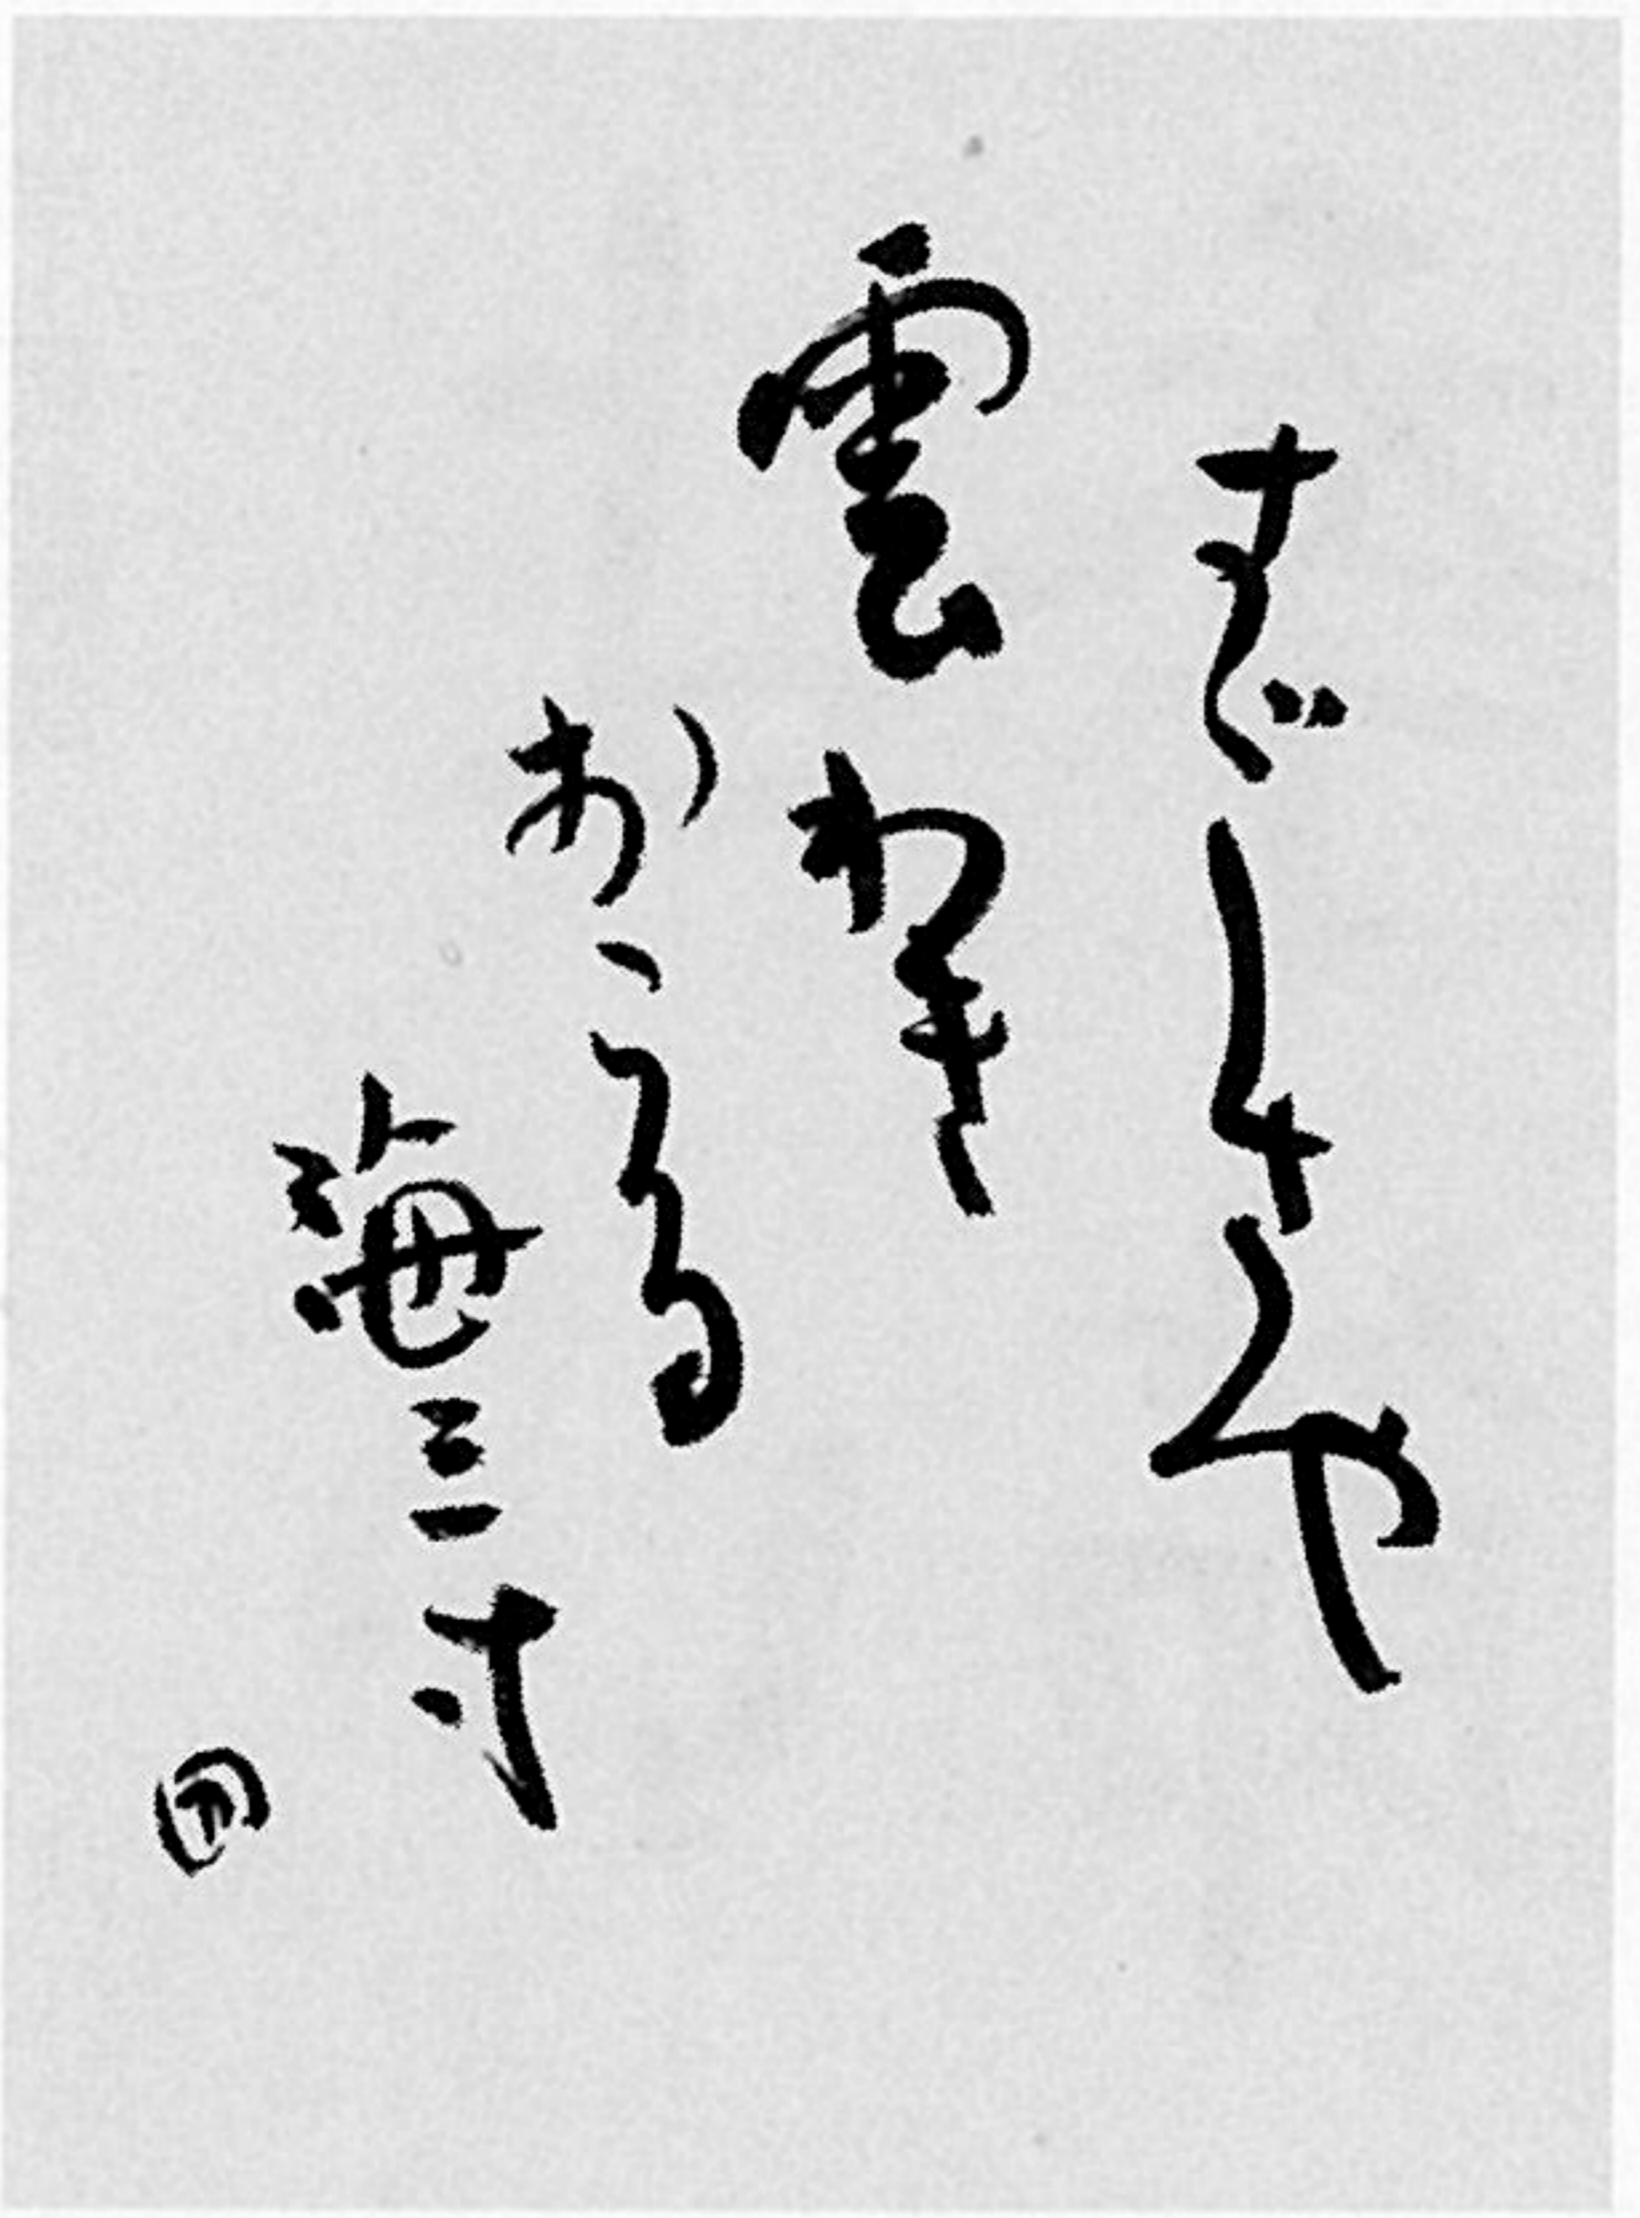 すゞしさや
雲わき
おこる
海三寸